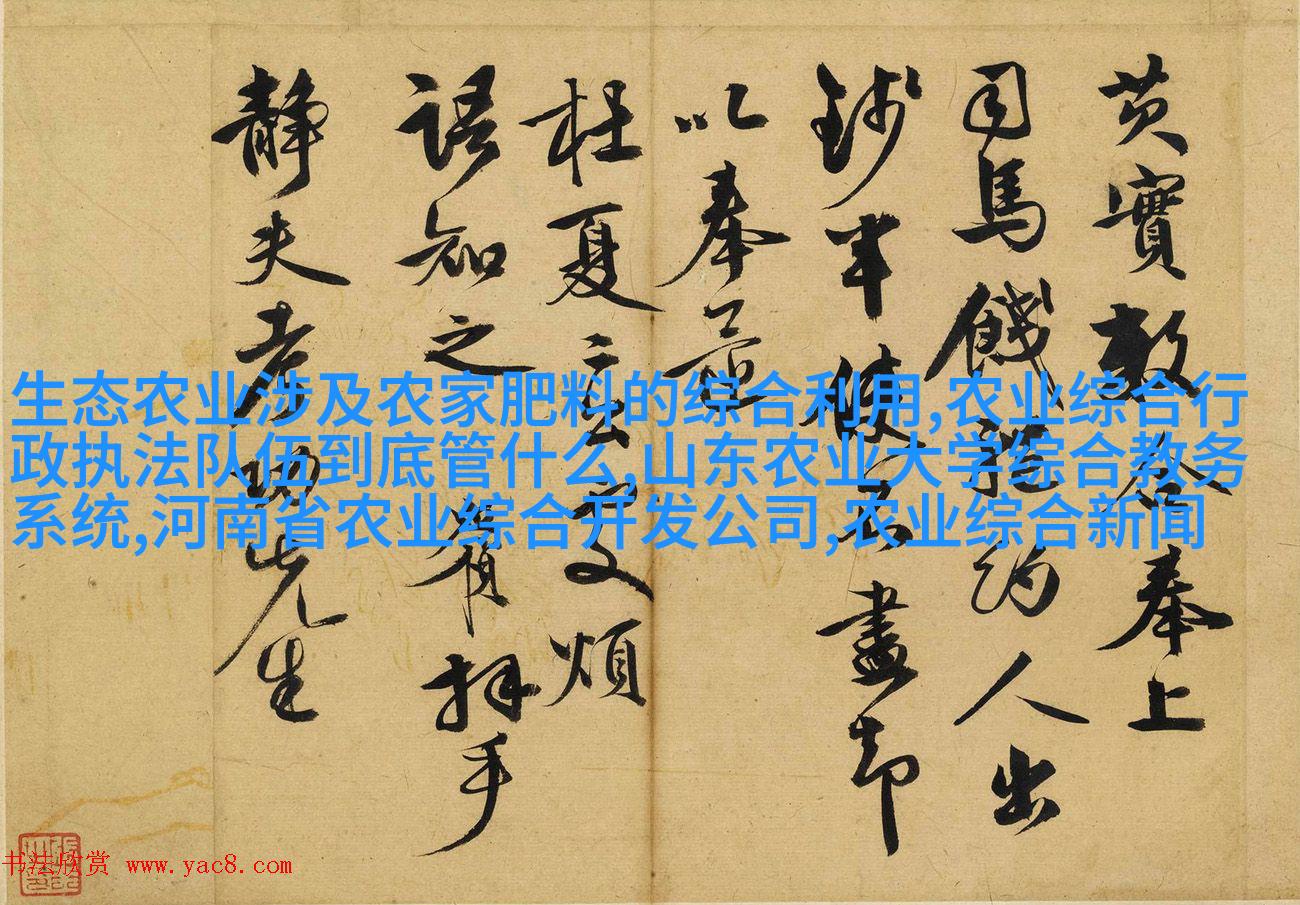 芡實數合奉上
司馬餞禮約人出
錢半使不盡却
以奉
杜夏二公 煩
語知之 宥拜手
静夫老 先生
生态农业涉及农家肥料的综合利用,农业综合行
政执法队伍到底管什么,山东农业大学综合教务
系统,河南省农业综合开发公司,农业综合新闻
书法欣赏 www.yac8.com